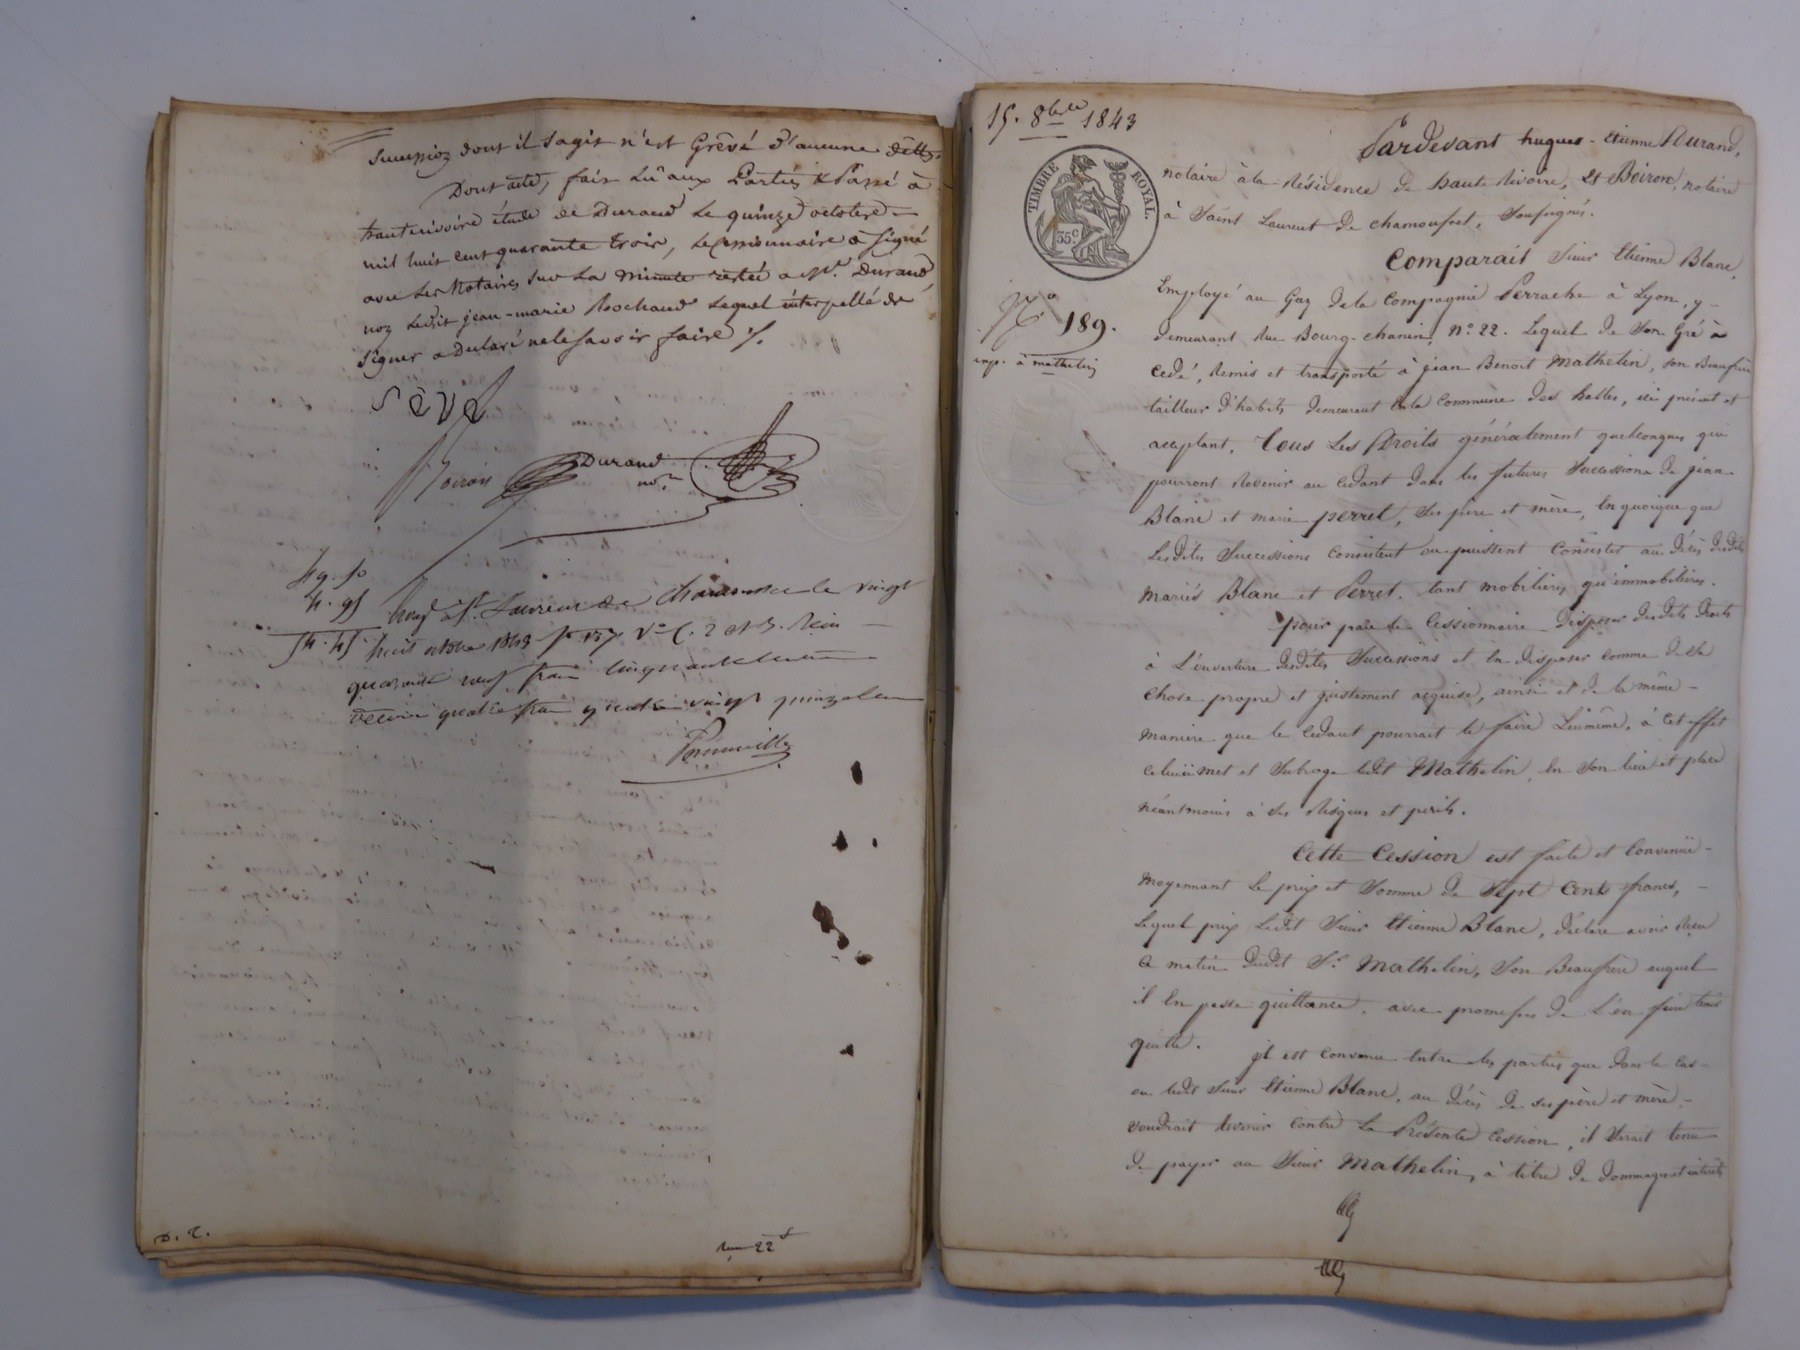 succession dont il sagit n'est Grêvé d'aucune dette.
Dont acte, fait Lû aux Parties & Passé à
hauterivoire étude de Durand Le quinze octobre
mil huit cent quarante trois, Le Cessionnaire a signé
avec Les Notaires sur La minute restée a Me. Durand,
non Ledit jean-marie Rochand Lequel interpellé de
signer a Déclaré ne le savoir faire ./.
Sève
Durand
nore
49. 50
4. 95
54. 45
Enregé à St. Laurent de Chamousset le vingt
huit octobre 1843 fo 137 Vo C. 2 et 3. Reçu
quarante neuf francs cinquante centimes
décime quatre francs quatre vingt quinze cen
D. R.
22
15. 8bre 1843
Pardevant hugues-Etienne Durand,
notaire à la Résidence de haute Rivoire, Et Boiron, notaire
à Saint Laurent de chamousset, soussignés.
TIMBRE ROYAL.
35c
Comparait Sieur Etienne Blanc,
No 189.
Employé au Gaz de la Compagnie Perrache à Lyon, y
demeurant Rue Bourg-chanin, no. 22. Lequel de son Gré a
exp. à mathelin
Cédé, Remis et transporté à jean Benoit Mathelin, son Beaufrère
tailleur d'habits demeurant en la Commune des halles, ici présent et
acceptant, Tous Les Droits généralement quelconques qui
pourront Revenir au cédant dans les futures Successions de jean
Blanc et marie perret, ses père et mère, En quoique que
Lesdites Successions Consistent ou puissent Consister au décès desdits
mariés Blanc et Perret, tant mobilières, qu'immobilières.
pour par le Cessionnaire Disposer desdits Droits
à L'ouverture desdites Successions et En disposer comme de sa
chose propre et justement acquise, ainsi et de la même
manière que le Cédant pourrait le faire Luimême, à cet effet
celui ci met et subroge ledit Mathelin, En son lieu et place
néantmoins à ses Risques et périls.
Cette Cession est faite et Convenüe
moyennant le prix et Somme de Sept Cents francs,
Lequel prix Ledit Sieur Etienne Blanc, déclare avoir Reçu
ce matin dudit Sr. Mathelin, son Beaufrère auquel
il En passe quittance, avec promesse de L'en faire tenir
quitte. jl est Convenu Entre les parties que dans le cas
ou ledit Sieur Etienne Blanc, au décès de ses père et mère,
voudrait Revenir Contre La Présente Cession, il serait tenu
de payer au Sieur Mathelin, à titre de dommages et interets